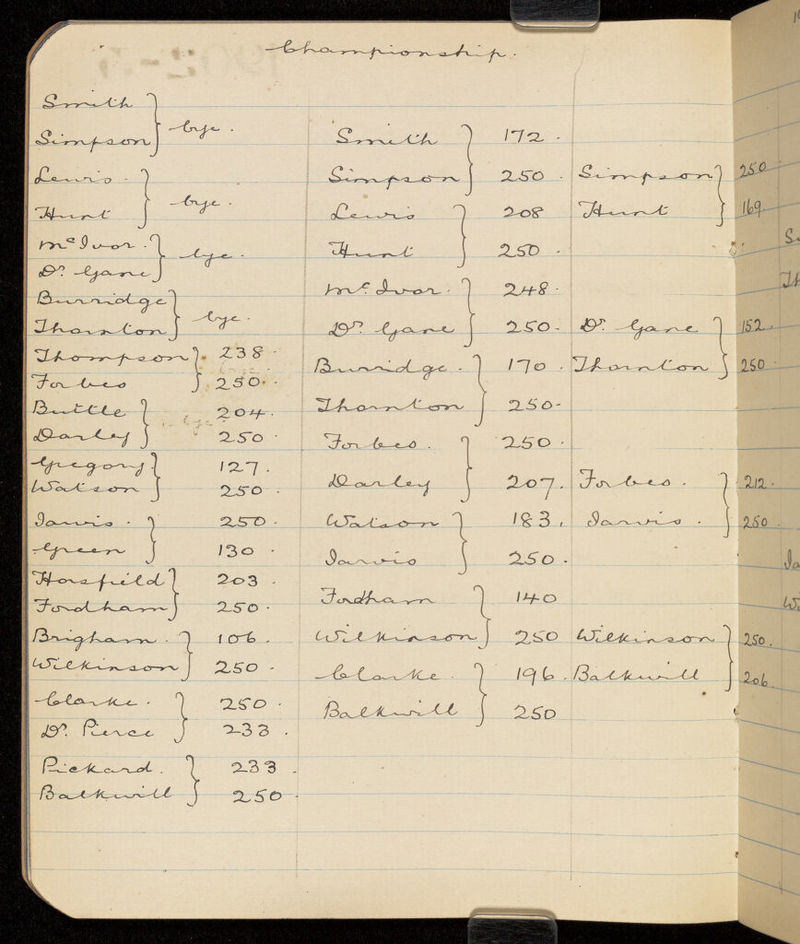 Championship.
Smith
Simpson } bye.
Lewis.
Hunt } bye.
McIvor.
Dr. Gane } bye.
Burridge
Thornton } bye.
Thompson } 238
Forbes } 250.
Buttle } 204.
Darley } 250
Gregory } 127.
Watson } 250
Jarvis. } 250.
Green } 130
Horsfield } 203
Fordham } 250.
Brigham. } 106.
Wilkinson } 250
Clarke. } 250
Dr. Pierce } 233.
Pickard. } 233.
Balkwill } 250
Smith } 172
Simpson } 250
Lewis } 208
Hunt } 250
McIvor. } 248
Dr. Gane } 250
Burridge. } 170
Thornton } 250
Forbes. } 250
Darley } 207.
Watson } 183.
Jarvis } 250.
Fordham } 140
Wilkinson } 250
Clarke. } 196.
Balkwill } 250
Simpson } 250
Hunt } 169
Dr. Gane } 152
Thornton } 250
Forbes. } 212.
Jarvis. } 250
Wilkinson } 250.
Balkwill } 206